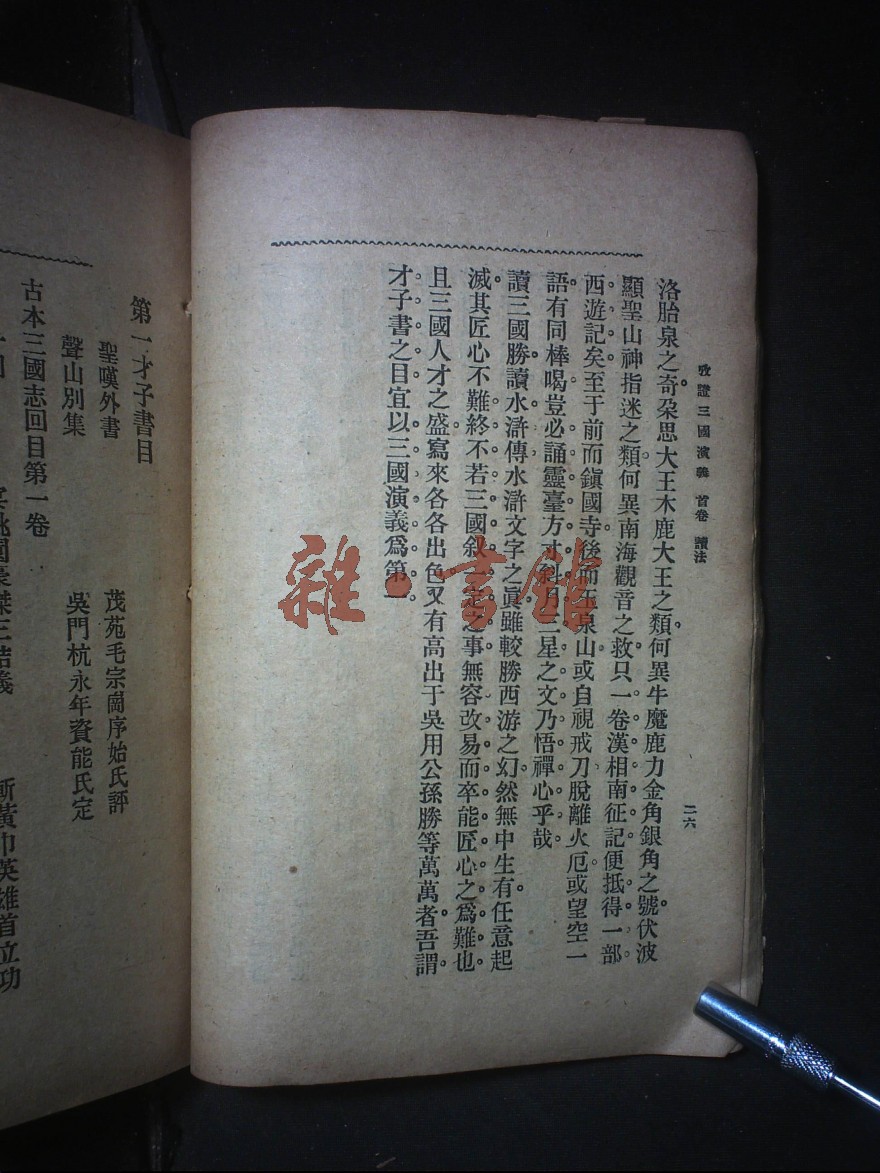 攷證三國演義 首卷 讀法
二六
洛胎泉之奇朶思大王木鹿大王之類何異牛魔鹿力金角銀角之號伏波
顯聖山神指迷之類何異南海觀音之救只一卷漢相南征記便抵得一部
西遊記矣至于前而鎭國寺後而玉泉山或自視戒刀脫離火厄或望空一
語有同棒喝豈必誦靈臺方寸斜月三星之文乃悟禪心乎哉
讀三國勝讀水滸傳水滸文字之眞雖較勝西游之幻然無中生有任意起
滅其匠心不難終不若三國敘一定之事無容改易而卒能匠心之爲難也
且三國人才之盛寫來各各出色又有高出于吳用公孫勝等萬萬者吾謂
才子書之目宜以三國演義爲第一
第一才子書目
聖嘆外書 茂苑毛宗崗序始氏評
聲山別集 吳門杭永年資能氏定
古本三國志回目第一卷
桃園豪傑三結義 斬黃巾英雄首立功
雜·書館